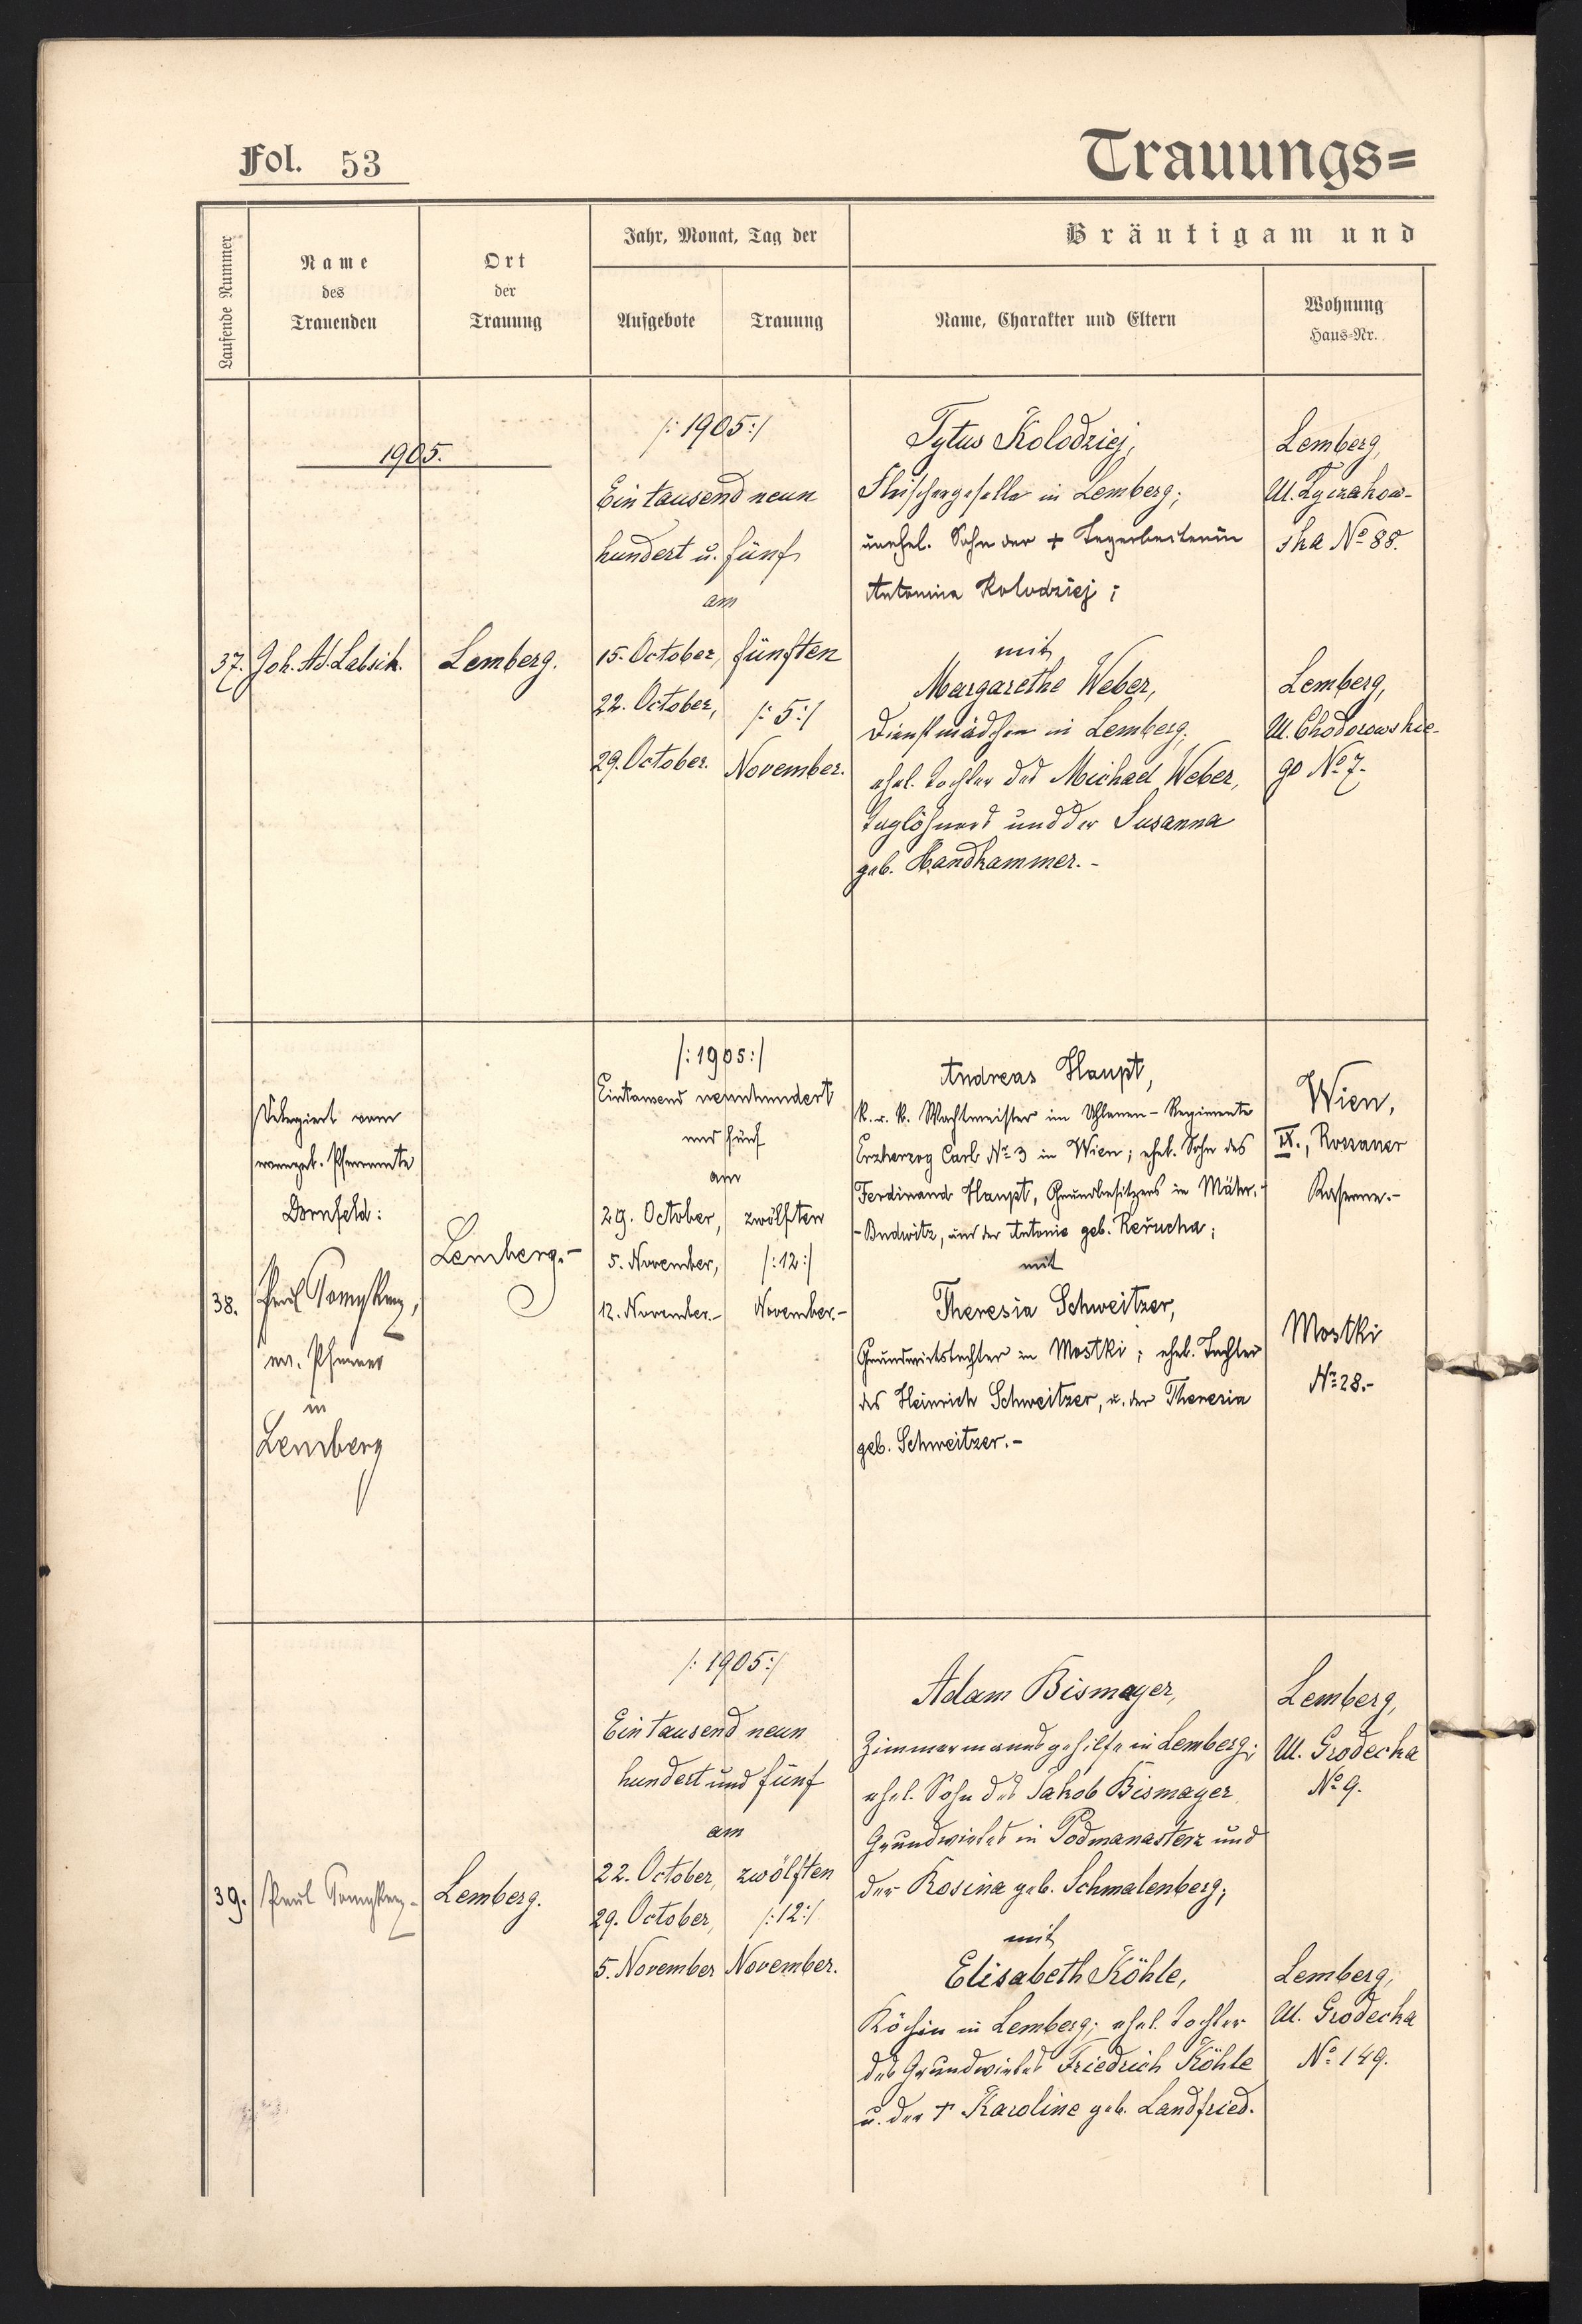 Fol. 53
Trauungs=
Laufende Nummer
Name
des
Trauenden
Ort
der
Trauung
Jahr, Monat, Tag der
Aufgebote
Trauung
Bräutigam und
Name, Charakter und Eltern
Wohnung
Haus-Nr.
1905.
37.
Joh. Ad. Labsik.
Lemberg.
/: 1905 :/
Ein tausend neun
hundert u. fünf
am
15. October, fünften
22. October, /: 5 :/
29. October. November.
Tytus Kolodziej,
Fleischergeselle in Lemberg;
unehel. Sohn der +
Antonina Kolodziej;
mit
Margarethe Weber,
Dienstmädchen in Lemberg;
ehel. Tochter des Michael Weber,
Taglöhners und der Susanna
geb. Handkammer.-
Lemberg,
Ul. Lyczakow-
ska No 88.
Lemberg,
Ul. Chodorowskie-
go No 7.
38.
Delegiert vom
evangel. Pfarramte
Dornfeld:
Paul
ev. Pfarrer
in
Lemberg
Lemberg.-
/: 1905 :/
Eintausend neunhundert
und fünf
am
29. October, zwölften
5. November, /: 12 :/
12. November.- November.-
Andreas Haupt,
k. u. k. Wachtmeister im Uhlanen-Regimente
Erzherzog Carl No 3 in Wien; ehel. Sohn des
Ferdinand Haupt, Grundbesitzers in Mähr.-
-Budwitz, und der Antonie geb. Keřucha;
mit
Theresia Schweitzer,
Grundwirtstochter in Mostki; ehel. Tochter
des Heinrich Schweitzer, u. der Theresia
geb. Schweitzer.-
Wien,
IX., Rossauer
Kaserne.-
Mostki
No 28.-
39.
Paul
Lemberg.
/: 1905 :/
Ein tausend neun
hundert und fünf
am
22. October, zwölften
29. October, /: 12 :/
5. November November.
Adam Bismayer,
Zimmermannsgehilfe in Lemberg;
ehel. Sohn des Jakob Bismayer,
Grundwirtes in Podmanasterz und
der Rosina geb. Schmalenberg;
mit
Elisabeth Köhle,
Köchin in Lemberg; ehel. Tochter
des Grundwirtes Friedrich Köhle
u. der + Karoline geb. Landfried.
Lemberg,
Ul. Grodecka
No 9.
Lemberg,
Ul. Grodecka
No 149.